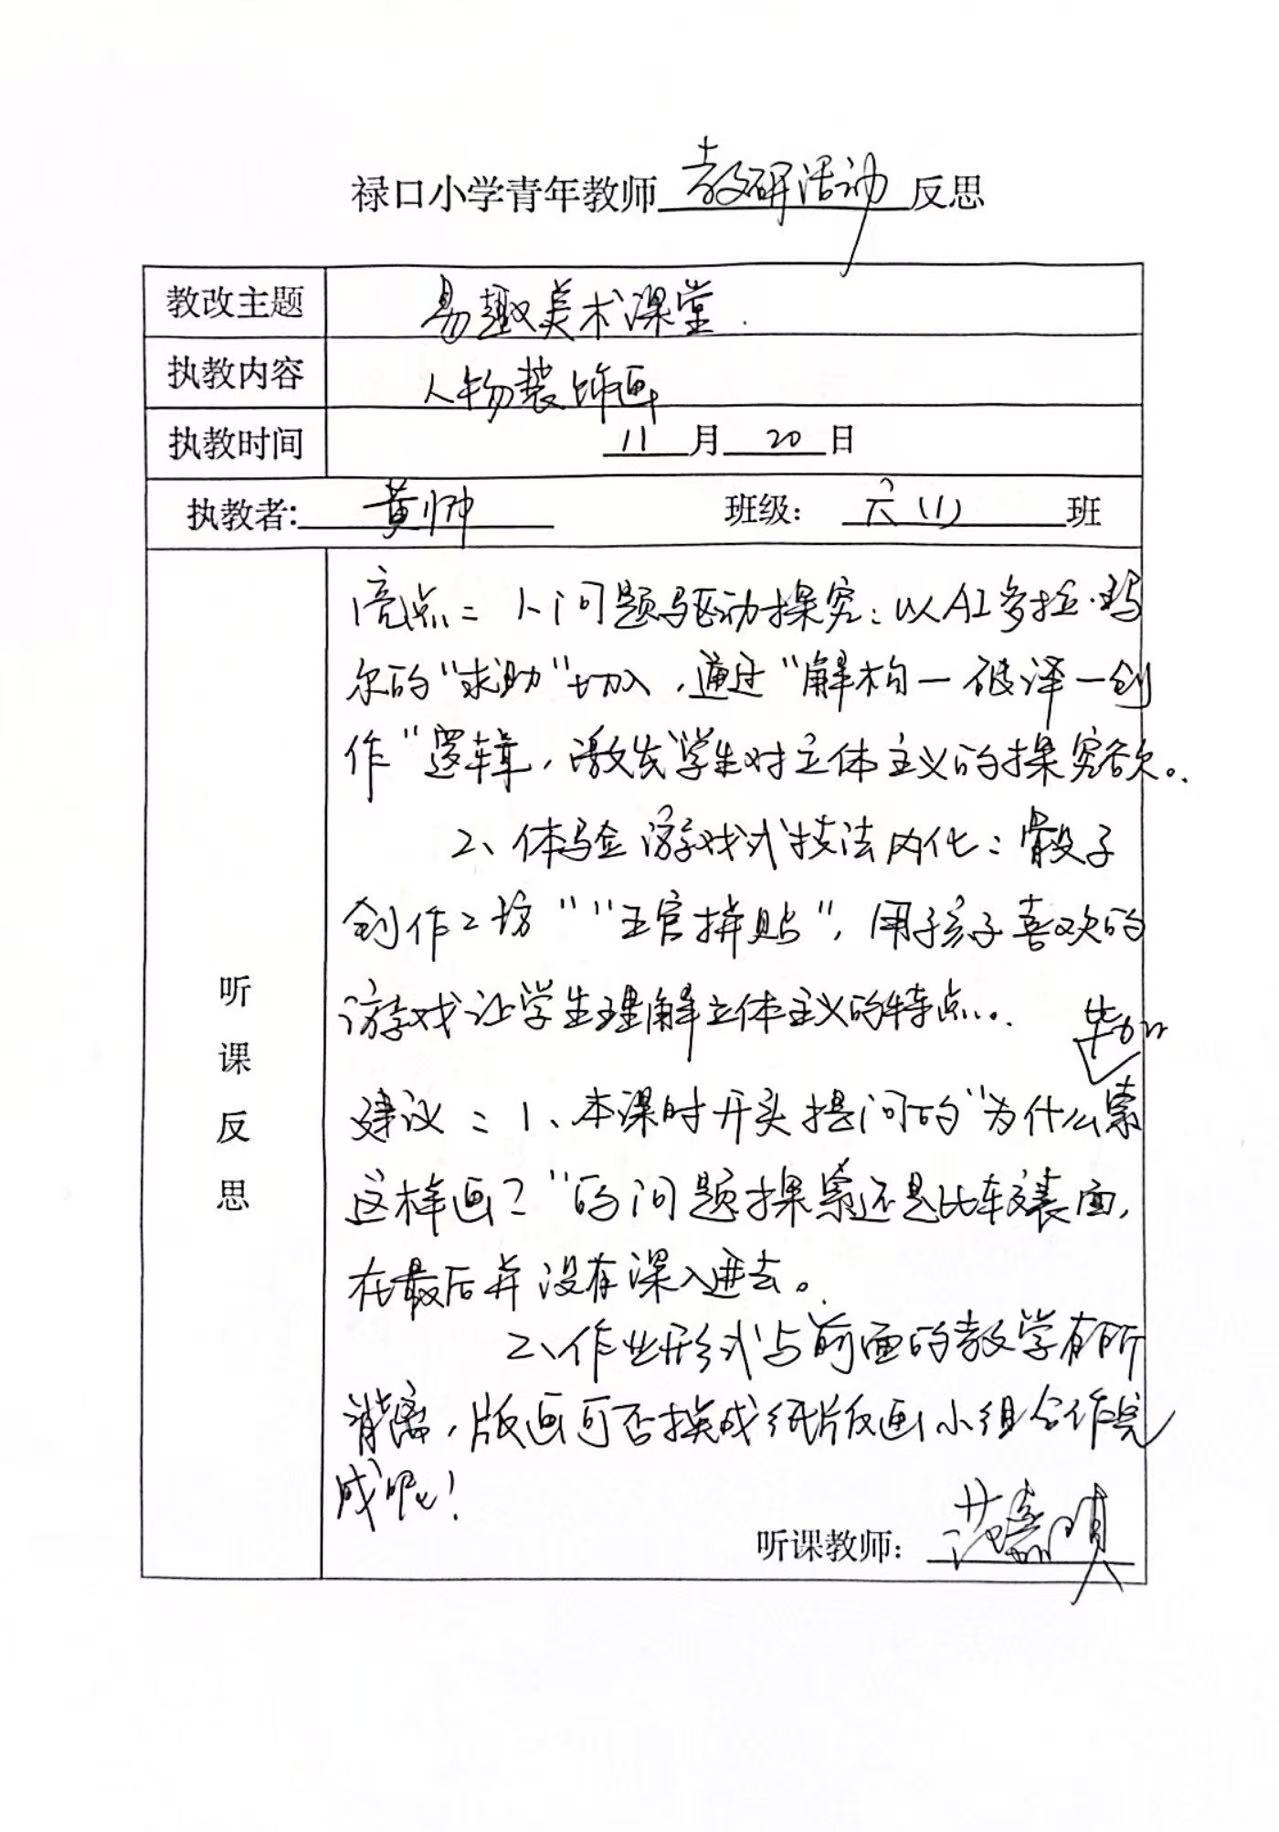 禄口小学青年教师 教研活动 反思
教改主题 易趣美术课堂.
执教内容 人物装饰画
执教时间 11 月 20 日
执教者: 黄帅 班级: 六(1) 班
听课反思
亮点: 1、问题驱动探究: 以AI多拉·玛
尔的"求助"切入,通过"解构—破译—创
作"逻辑,激发学生对立体主义的探究欲。
2、体验游戏式技法内化: 骰子
创作工坊""五官拼贴",用孩子喜欢的
游戏让学生理解立体主义的特点。
毕加
建议: 1、本课时开头提问的"为什么索
这样画?"的问题探索还是比较表面,
在最后并没有深入进去。
2、作业形式与前面的教学有所
背离,版画可否换成纸片版画小组合作完
成呢!
听课教师: